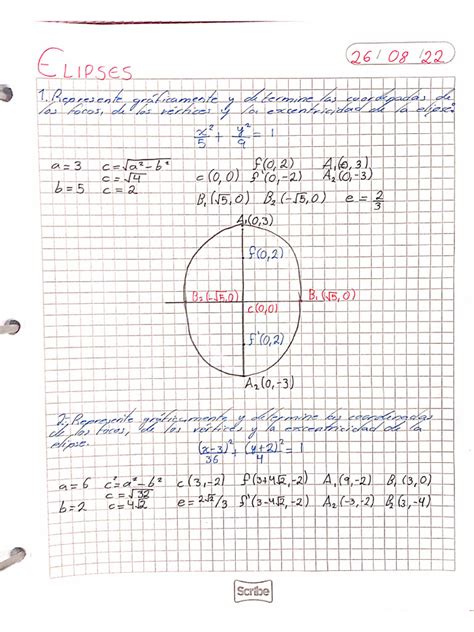 26/08/22
ELIPSES
1. Represente gráficamente y determine las coordenadas de
los focos, de los vértices y la excentricidad de la elipse.
x²/5 + y²/9 = 1
a=3 c=√a²-b² f(0,2) A₁(0,3)
c=√4 c(0,0) f'(0,-2) A₂(0,-3)
b=5 c=2 B₁(√5,0) B₂(-√5,0) e=2/3
A₁(0,3)
f(0,2)
B₂(-√5,0) B₁(√5,0)
c(0,0)
f'(0,2)
A₂(0,-3)
2. Represente gráficamente y determine las coordenadas
de los focos, de los vértices y la excentricidad de la
elipse.
(x-3)²/36 + (y+2)²/4 = 1
a=6 c²=a²-b² c(3,-2) f(3+4√2,-2) A₁(9,-2) B₁(3,0)
c=√32
b=2 c=4√2 e=2√2/3 f'(3-4√2,-2) A₂(-3,-2) B₂(3,-4)
Scribe